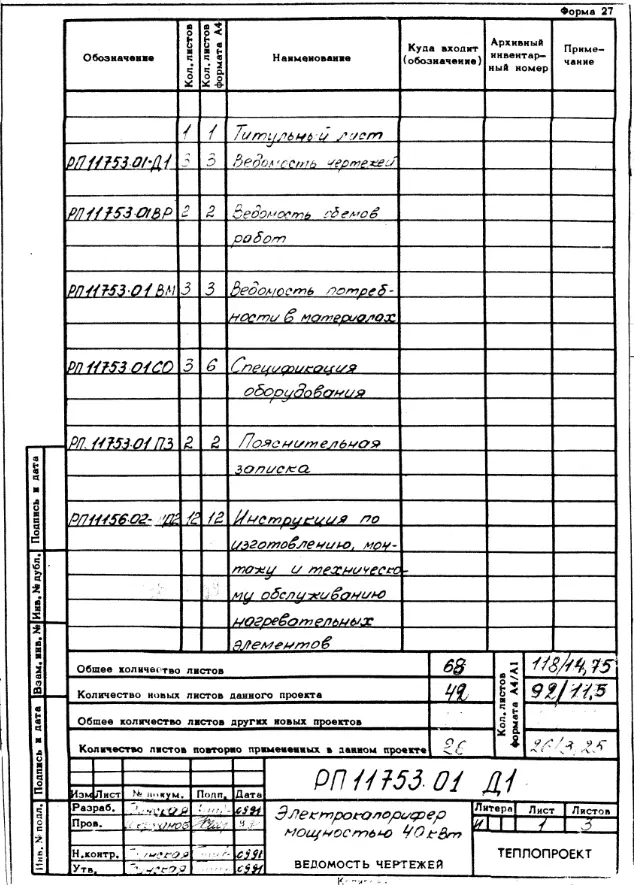 Форма 27
Обозначение Кол. листов Кол. листов формата А4 Наименование Куда входит (обозначение) Архивный инвентарный номер Примечание
1 1 Титульный лист
РП11753.01-Д1 3 3 Ведомость чертежей
РП11753.01ВР 2 2 Ведомость объемов
работ
РП11753.01 ВМ 3 3 Ведомость потреб-
ности в материалах
РП11753.01СО 3 6 Спецификация
оборудования
РП.11753.01 ПЗ 2 2 Пояснительная
записка
РП11156.02- Д2 12 12 Инструкция по
изготовлению, мон-
тажу и техническо-
му обслуживанию
нагревательных
элементов
Общее количество листов 68 Кол. листов формата А4/А1 118/14,75
Количество новых листов данного проекта 42 92/11,5
Общее количество листов других новых проектов
Количество листов повторно примененных в данном проекте 26 26/3,25
РП11753.01 Д1
Изм Лист № докум. Подп. Дата
Разраб. 0991
Пров.
Н.контр. 0991
Утв. 0991
Электрокалорифер
мощностью 40кВт
ВЕДОМОСТЬ ЧЕРТЕЖЕЙ
Литера Лист Листов
И 1 3
ТЕПЛОПРОЕКТ
Инв. № подл. Подпись и дата Взам. инв. № Инв. № дубл. Подпись и дата